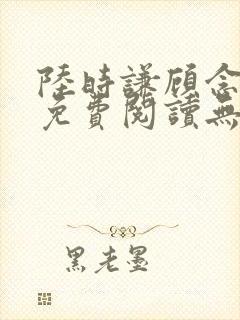 陸時謙顧念
免費閱讀無
黑老墨